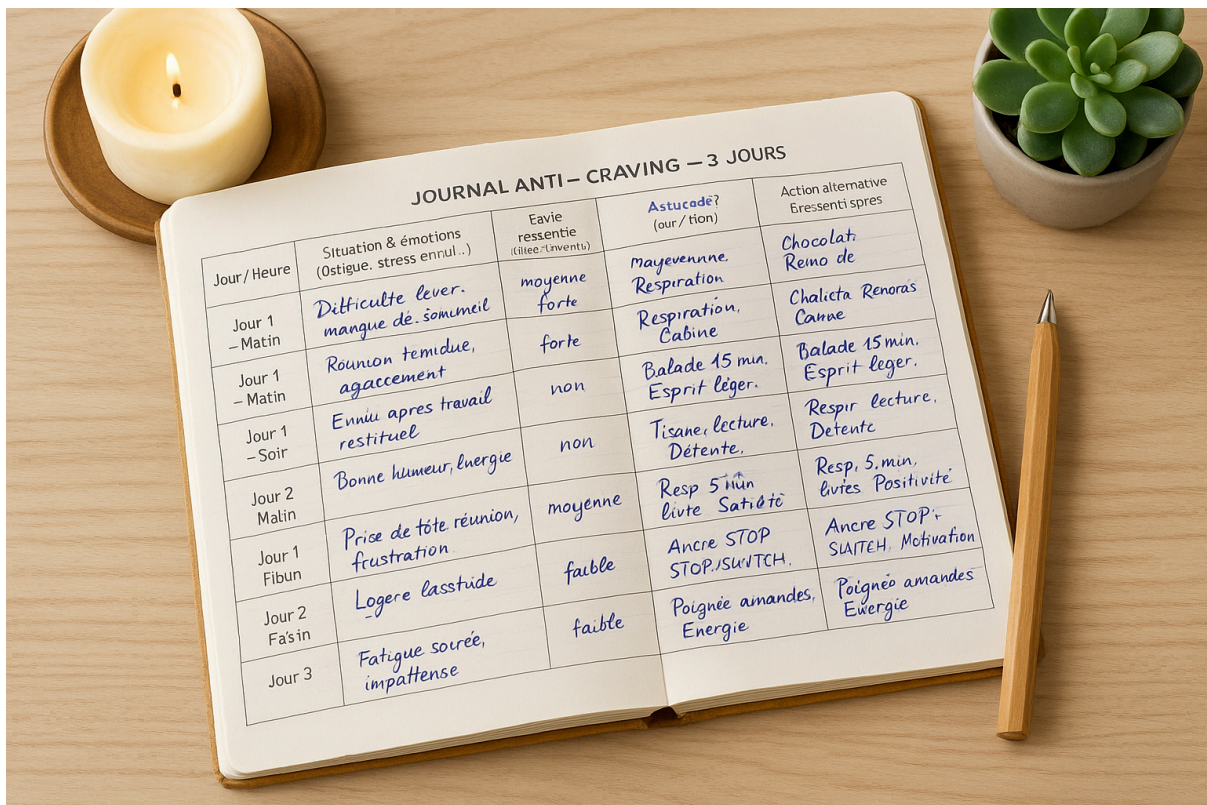 JOURNAL ANTI – CRAVING — 3 JOURS
Jour / Heure
Situation & émotions
(Ostigue. stress ennul...)
Eavie
ressentie
Astucadé?
(our / tion)
Action alternative
Eressenti spres
Jour 1
– Matin
Difficulte lever.
mangue dé. sommeil
moyenne
forte
mayevennne.
Respiration
Chocolat.
Reino de
Jour 1
– Matin
Rounıon temidue,
agaccement
forte
Respiration,
Cabine
Chalicta Renoras
Canne
Jour 1
– Soir
Ennıu apres travail
restituel
non
Balade 15 min.
Esprit léger.
Balade 15 min.
Esprit leger.
Jour 2
Malin
Bonne humeur, energie
non
Tisane, lecture,
Détente.
Respır lecture,
Detente
Jour 1
Fibun
Prise de tôte réunion,
frustration
moyenne
Resp 5 min
livte Satiété
Resp, 5. min,
livies Positivité
Jour 2
Fa's in
Logere lasstude
faible
Ancre STOP
STOP./SWITCH.
Ancre STOP+
SWITCH, Motivation
Jour 3
Fatigue soırée,
impattense
faible
Poignée amandes,
Energie
Poignéo amandes
Ewergie